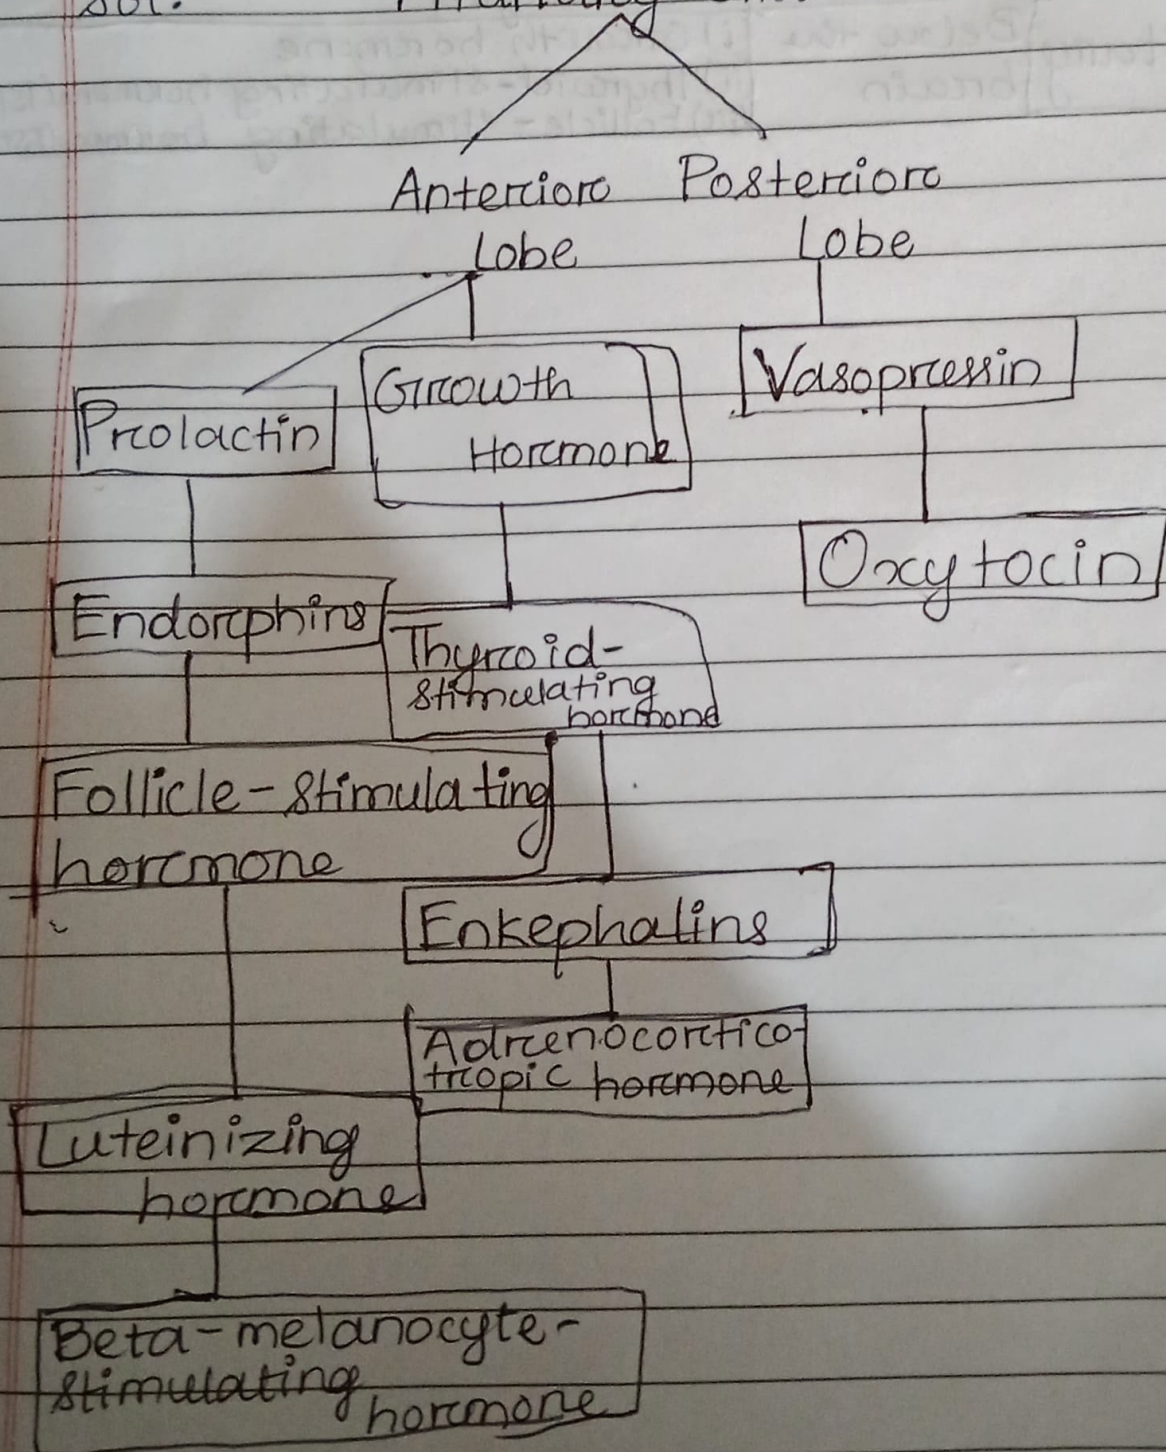 Anterior Posterior
Lobe Lobe
Prolactin
Growth
Hormone
Vasopressin
Oxytocin
Endorphins
Thyroid-
stimulating
hormone
Follicle-stimulating
hormone
Enkephalins
Adrenocortico-
tropic hormone
Luteinizing
hormone
Beta-melanocyte-
stimulating
hormone